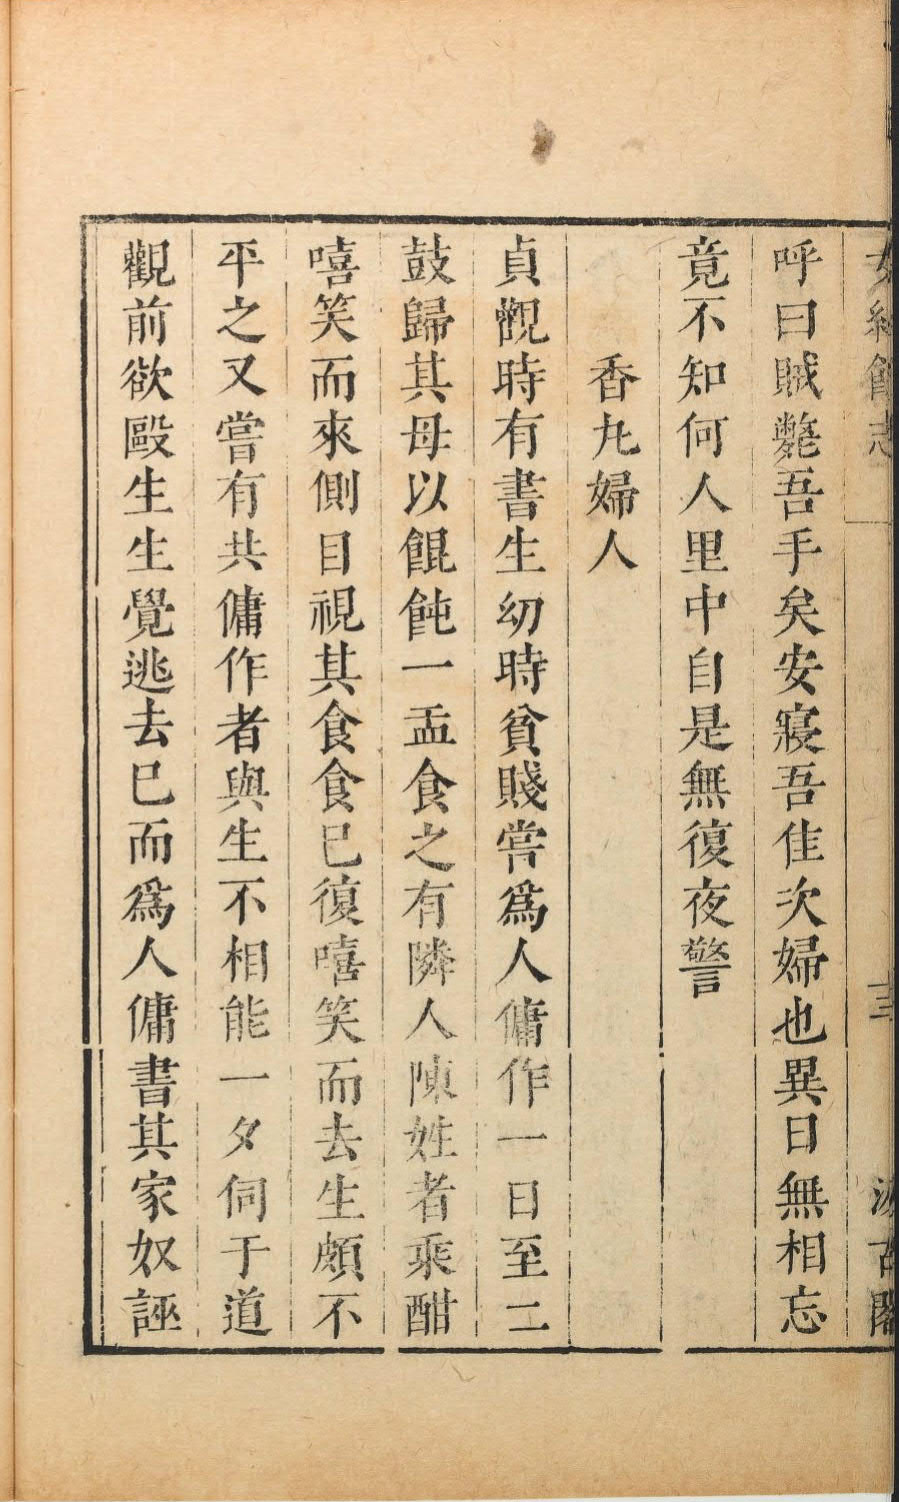 女紅餘志
十三
汲古閣
呼曰賊斃吾手矣安寢吾隹次婦也異日無相忘
竟不知何人里中自是無復夜警
香丸婦人
貞觀時有書生幼時貧賤甞爲人傭作一日至二
鼓歸其母以餛飩一盂食之有隣人陳姓者乘酣
嘻笑而來側目視其食食已復嘻笑而去生頗不
平之又嘗有共傭作者與生不相能一夕伺于道
觀前欲毆生生覺逃去已而爲人傭書其家奴誣